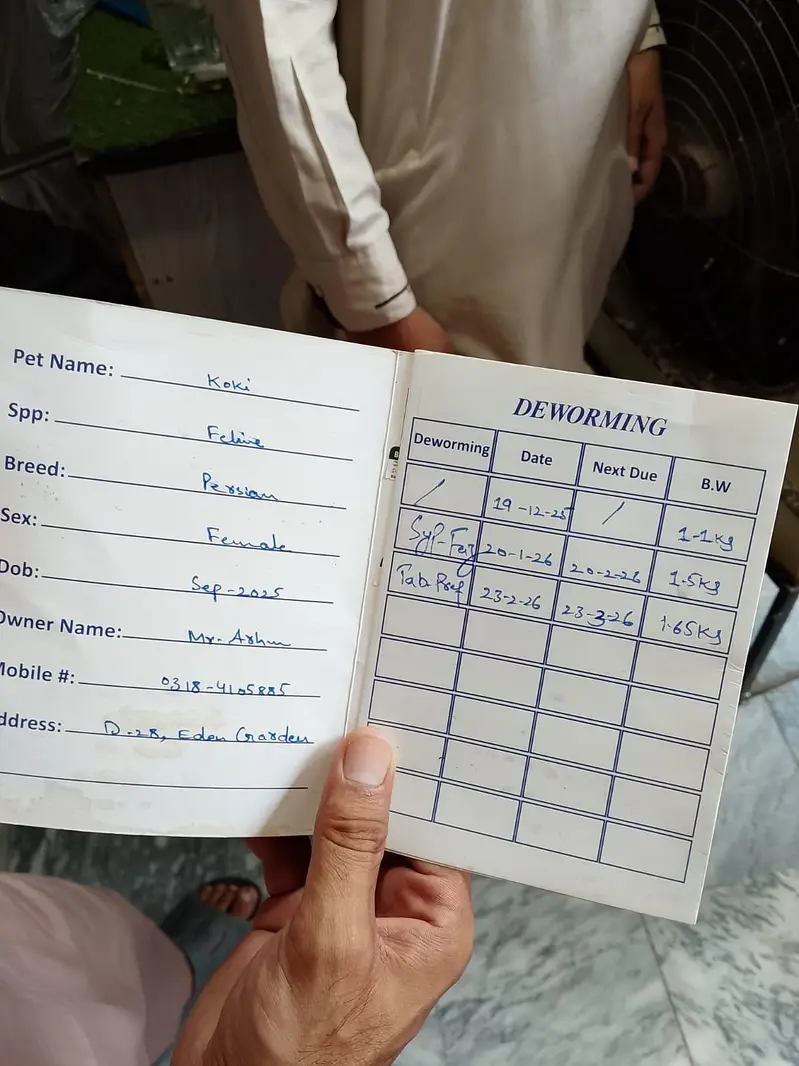 Pet Name: Koki
Spp: Feline
Breed: Persian
Sex: Female
Dob: Sep-2025
Owner Name: Mr. Ashm
Mobile #: 0318-4105885
ddress: D-28, Eden Garden
DEWORMING
Deworming Date Next Due B.W
/ 19-12-25 / 1-1kg
Syp- 20-1-26 20-2-26 1.5kg
Tab. Prof 23-2-26 23-3-26 1.65kg